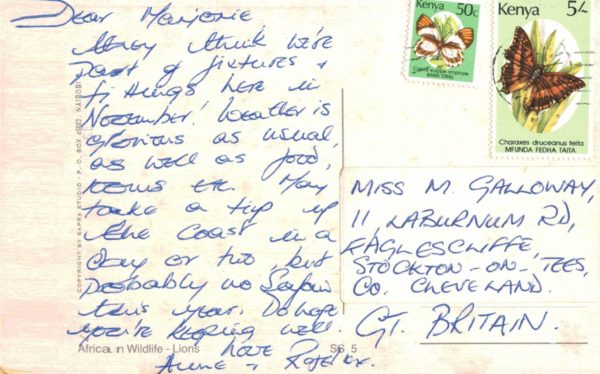 Dear Marjorie
They think we're
part of fixtures &
fittings here in
November! Weather is
glorious as usual,
as well as food,
rooms etc. May
take a trip up
the coast in a
day or two, but
probably no Safari
this year. Do hope
you're keeping well.
Love
Anne +
African Wildlife - Lions
SS 5
COPYRIGHT BY SAPRA STUDIO - P. O. BOX NAIROBI
Kenya 50c
BAWA DHIKI
Kenya 5/-
Charaxes druceanus teita
MFUNDA FEDHA TAITA
MISS M. GALLOWAY,
11 LABURNUM RD,
EAGLESCLIFFE,
STOCKTON-ON-TEES,
CO. CLEVELAND.
GT. BRITAIN.